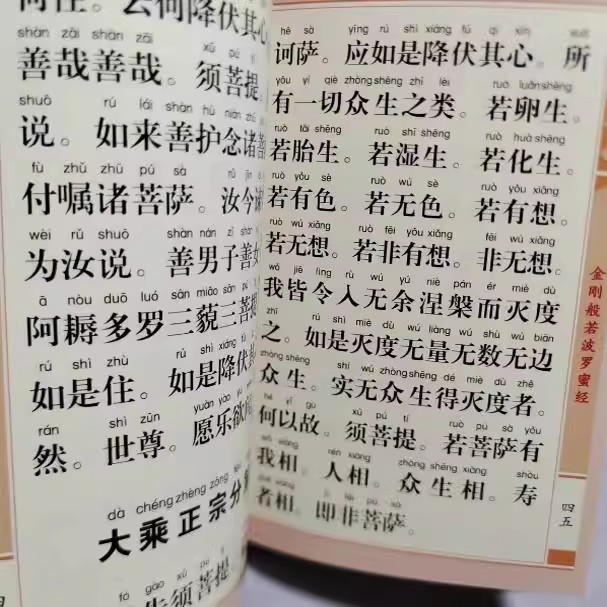 何住。云何降伏其心
shàn zāi shàn zāi xū pú
善哉善哉。须菩提
shuō rú lái shàn hù niàn zhū
说。如来善护念诸菩
fù zhǔ zhū pú sà rǔ jīn
付嘱诸菩萨。汝今
wèi rǔ shuō shàn nán zǐ shàn
为汝说。善男子善女
ā nòu duō luó sān miǎo sān pú
阿耨多罗三藐三菩提
rú shì zhù rú shì xiáng fú
如是住。如是降伏
rán shì zūn yuàn yào yù
然。世尊。愿乐欲闻
dà chéng zhèng zōng fēn
大乘正宗分
fó gào xū pú tí
告须菩提
hē sà yīng rú shì xiáng fú qí xīn suǒ
诃萨。应如是降伏其心。所
yǒu yí qiè zhòng shēng zhī lèi ruò luǎn shēng
有一切众生之类。若卵生。
ruò tāi shēng ruò shī shēng ruò huà shēng
若胎生。若湿生。若化生。
ruò yǒu sè ruò wú sè ruò yǒu xiǎng
若有色。若无色。若有想。
ruò wú xiǎng ruò fēi yǒu xiǎng fēi wú xiǎng
若无想。若非有想。非无想。
wǒ jiē lìng rù wú yú niè pán ér miè dù
我皆令入无余涅槃而灭度
zhī rú shì miè dù wú liàng wú shù wú biān
之。如是灭度无量无数无边
zhòng shēng shí wú zhòng shēng dé miè dù zhě
众生。实无众生得灭度者。
hé yǐ gù xū pú tí ruò pú sà yǒu
何以故。须菩提。若菩萨有
wǒ xiàng rén xiàng zhòng shēng xiàng shòu
我相。人相。众生相。寿
者相。即非菩萨。
金刚般若波罗蜜经
四五